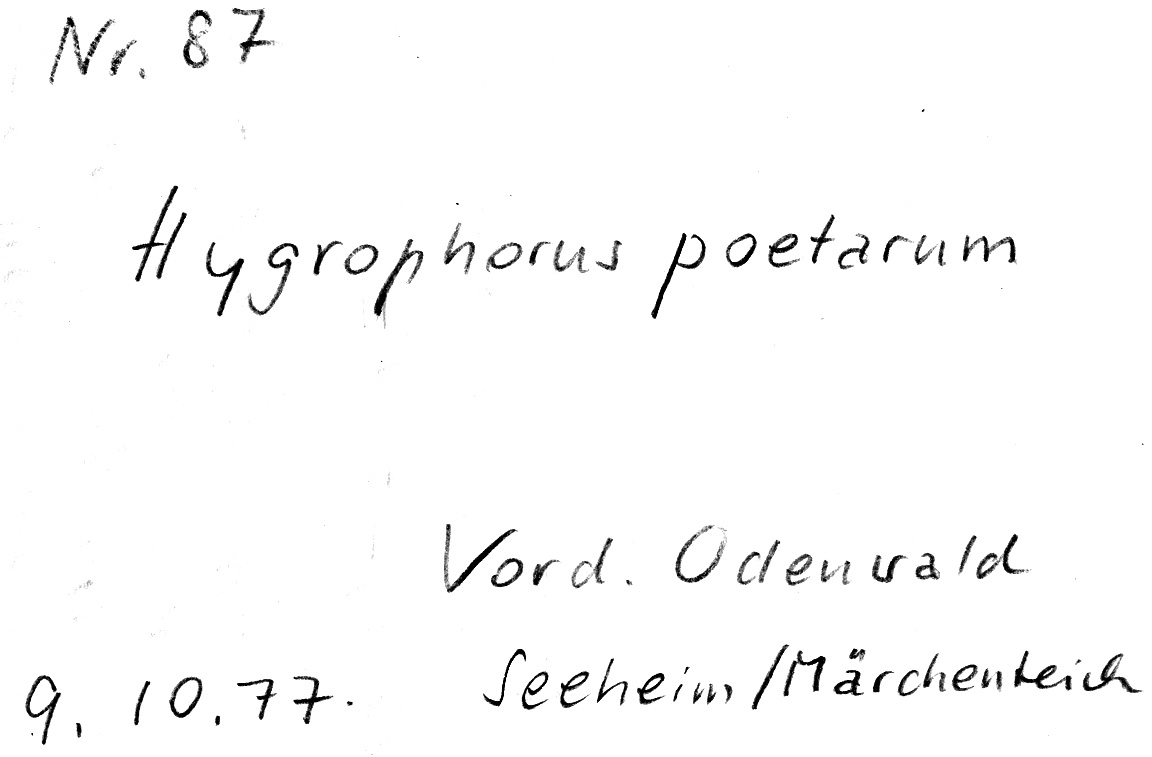 Nr. 87
Hygrophorus poetarum
Vord. Odenwald
9. 10. 77. Seeheim/Märchenteich